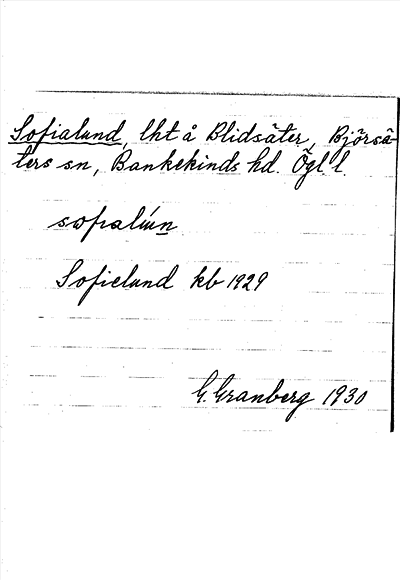 Sofialund, lht å Blidsäter, Björsä-
ters sn, Bankekinds hd. Ögl l
Sofielund kb 1929
G. Granberg 1930